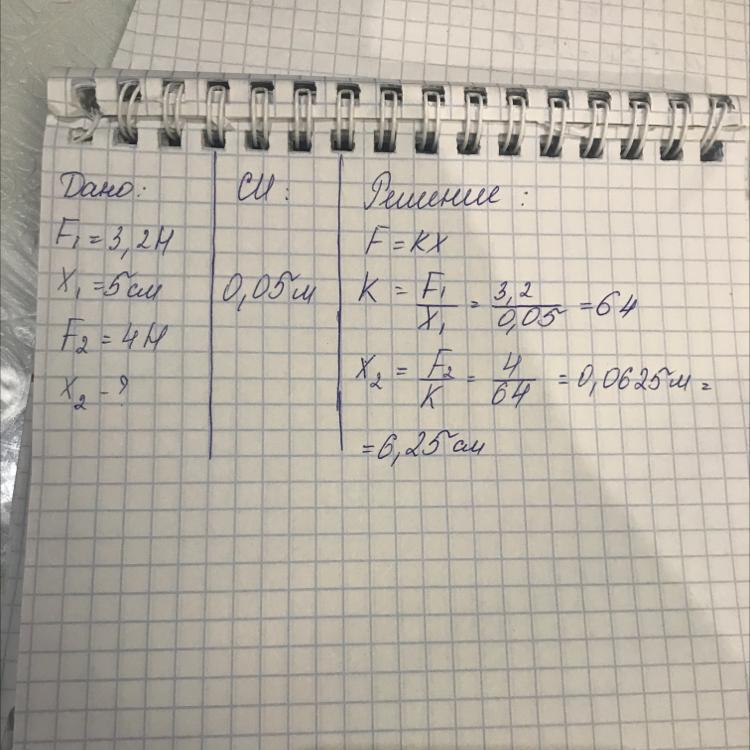 Дано:
F₁ = 3,2Н
X₁ = 5см
F₂ = 4Н
X₂ - ?
СИ:
0,05м
Решение:
F = KX
K = F₁/X₁ = 3,2/0,05 = 64
X₂ = F₂/K = 4/64 = 0,0625м =
= 6,25см